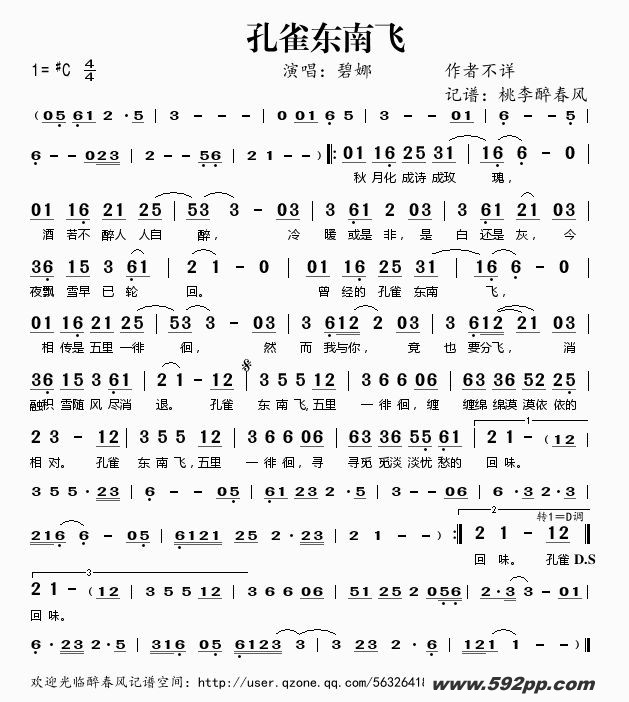 孔雀东南飞
1= #C 4/4 演唱：碧娜 作者不详
记谱：桃李醉春风
（05 61 2 · 5 | 3 - - - | 0 01 6 5 | 3 - - 01 | 6 - - 5 |
6 - - 023 | 2 - - 56 | 2 1 - ）‖: 01 16 25 31 | 16 6 - 0 |
秋 月化 成诗 成玫 瑰，
01 16 21 25 | 53 3 - 03 | 3 61 2 03 | 3 61 21 03 |
酒 若不 醉人 人自 醉， 冷 暖 或是 非，是 白 还是 灰，今
36 15 3 61 | 2 1 - 0 | 01 16 25 31 | 16 6 - 0 |
夜飘 雪早 已 轮 回。 曾 经的 孔雀 东南 飞，
01 16 21 25 | 53 3 - 03 | 3 612 2 03 | 3 612 21 03 |
相 传是 五里 一徘 徊， 然 而 我与你， 竟 也 要分飞，消
36 15 3 61 | 2 1 - 12 | 3 5 5 12 | 3 6 6 06 | 63 36 52 25 |
融积 雪随 风 尽消 退。 孔雀 东 南 飞,五里 一 徘 徊，缠 缠绵 绵漠 漠依 依的
2 3 - 12 | 3 5 5 12 | 3 6 6 06 | 63 36 55 61 | 2 1 - （12 |
相 对。 孔雀 东 南 飞,五里 一 徘 徊，寻 寻觅 觅淡 淡忧 愁的 回 味。
1
3 5 5 · 23 | 6 - - 05 | 61 2 2 · 5 | 3 - - 06 | 6 · 3 2 · 3 |
2 转1＝D调
216 6 - 05 | 6121 25 2 · 23 | 2 1 - - ） :‖ 2 1 - 12 ‖
回 味。 孔雀 D.S
3
2 1 - （12 | 3 5 5 12 | 3 6 6 06 | 51 25 2 056 | 2 · 3 3 - 01 |
回 味。
6 · 23 2 · 5 | 316 05 6123 3 | 3 23 2 · 6 | 121 1 - - ）‖
欢迎光临醉春风记谱空间：http://user.qzone.qq.com/56326418
www.592pp.com